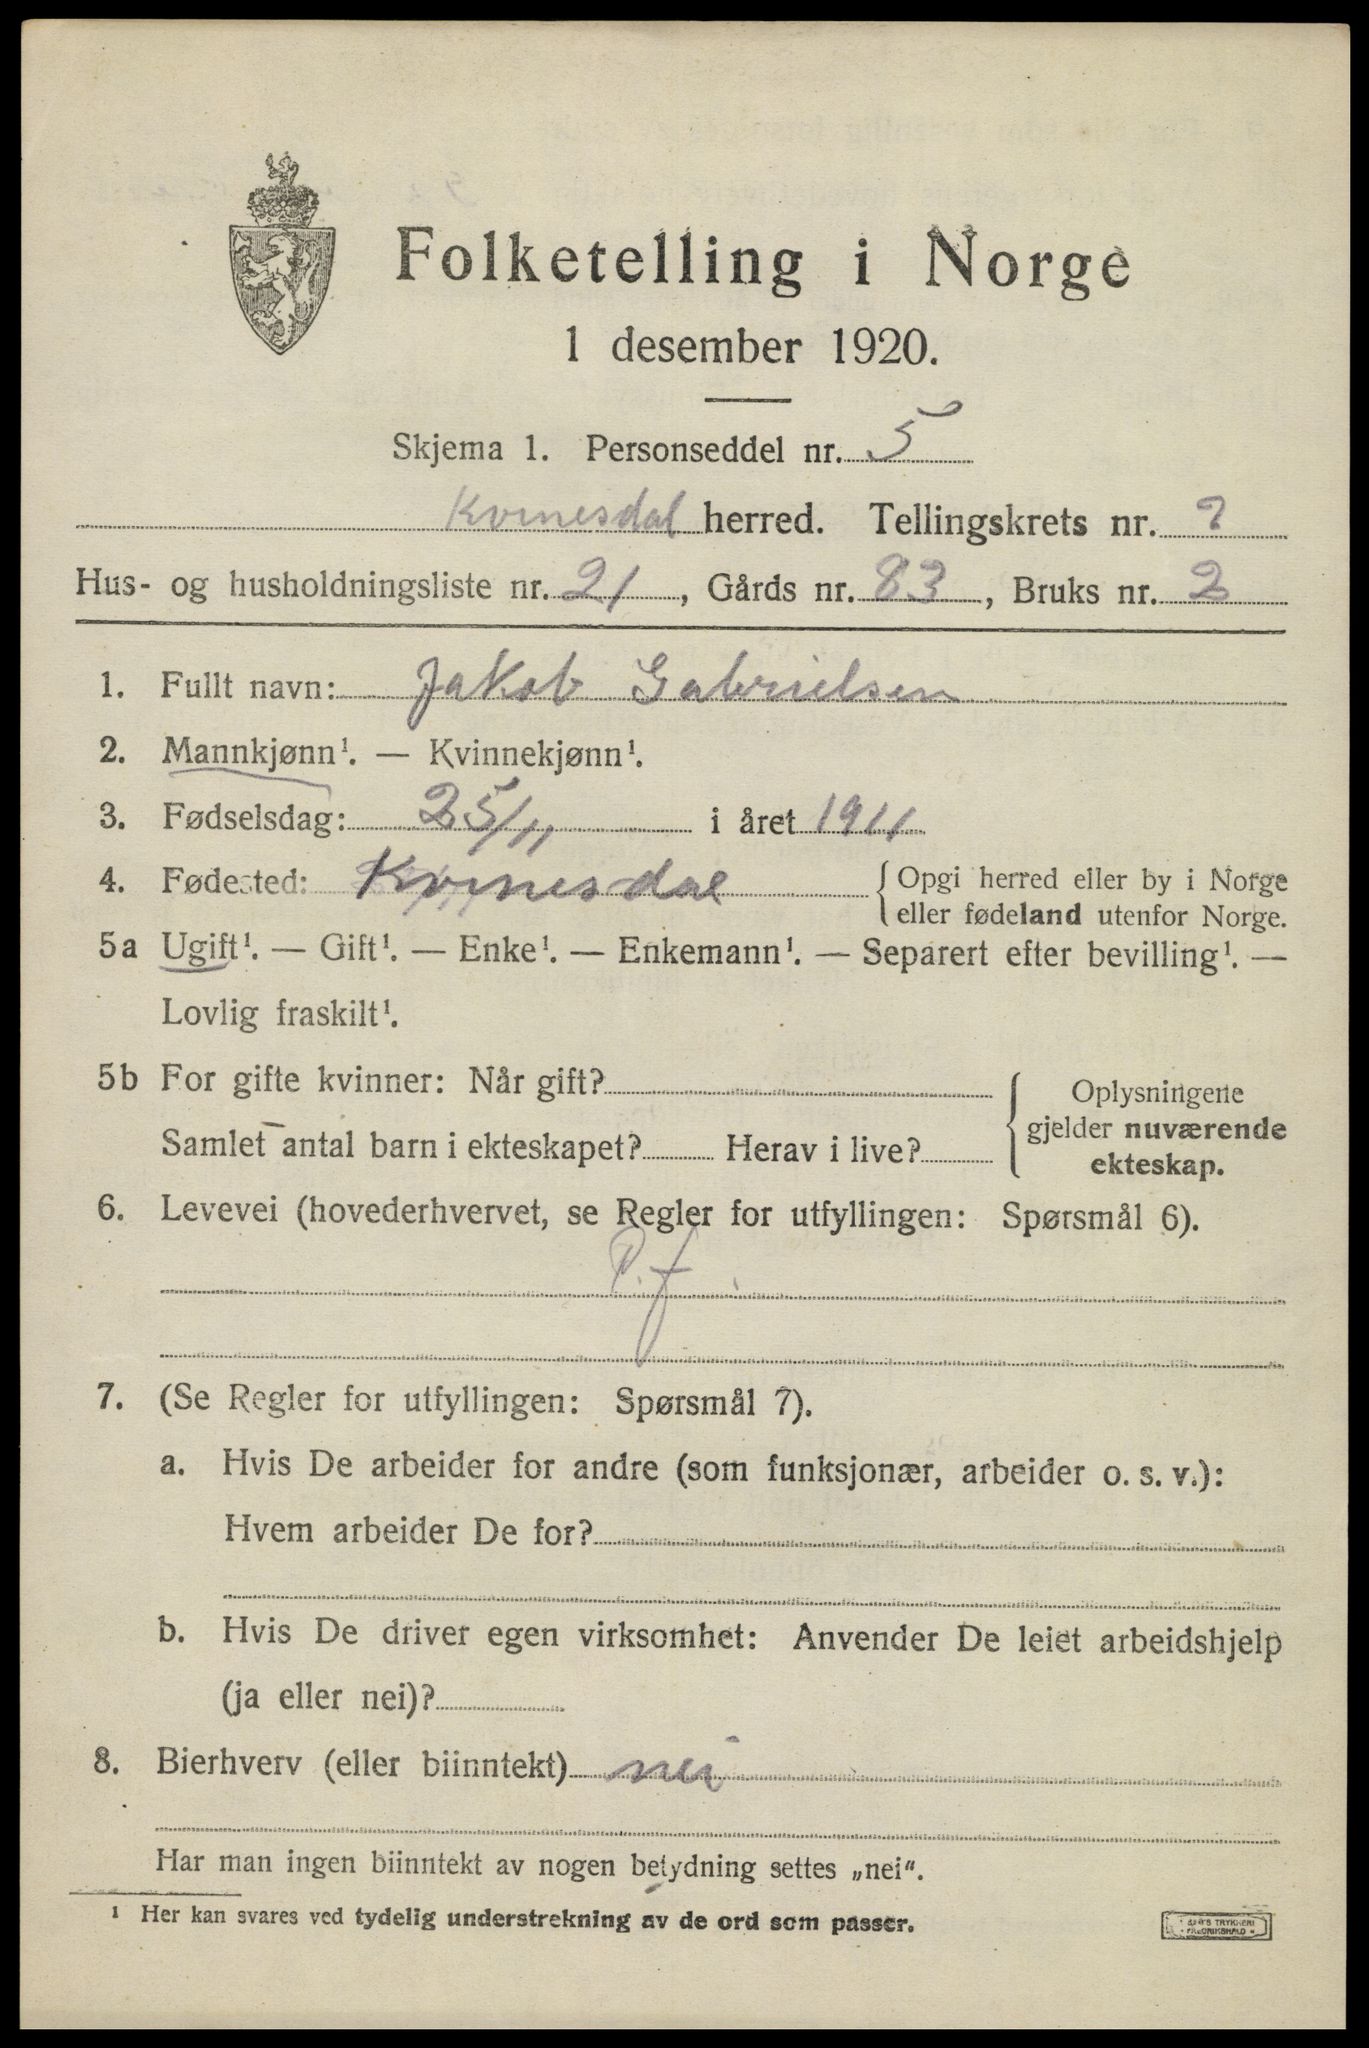 Folketelling i Norge
1 desember 1920.
Skjema 1. Personseddel nr. 5
Kvinesdal herred. Tellingskrets nr. 7
Hus- og husholdningsliste nr. 21, Gårds nr. 83, Bruks nr. 2
1. Fullt navn: Jakob Gabrielsen
2. Mannkjønn¹. — Kvinnekjønn¹.
3. Fødselsdag: 25/11 i året 1911
4. Fødested: Kvinesdal { Opgi herred eller by i Norge
eller fødeland utenfor Norge.
5a Ugift¹. — Gift¹. — Enke¹. — Enkemann¹. — Separert efter bevilling¹. —
Lovlig fraskilt¹.
5b For gifte kvinner: Når gift?
Samlet antal barn i ekteskapet? Herav i live?
{ Oplysningene
gjelder nuværende
ekteskap.
6. Levevei (hovederhvervet, se Regler for utfyllingen: Spørsmål 6).
P.f
7. (Se Regler for utfyllingen: Spørsmål 7).
a. Hvis De arbeider for andre (som funksjonær, arbeider o. s. v.):
Hvem arbeider De for?
b. Hvis De driver egen virksomhet: Anvender De leiet arbeidshjelp
(ja eller nei)?
8. Bierhverv (eller biinntekt) nei
Har man ingen biinntekt av nogen betydning settes „nei".
¹ Her kan svares ved tydelig understrekning av de ord som passer.
TRYKKERI
FREDRIKSHALD